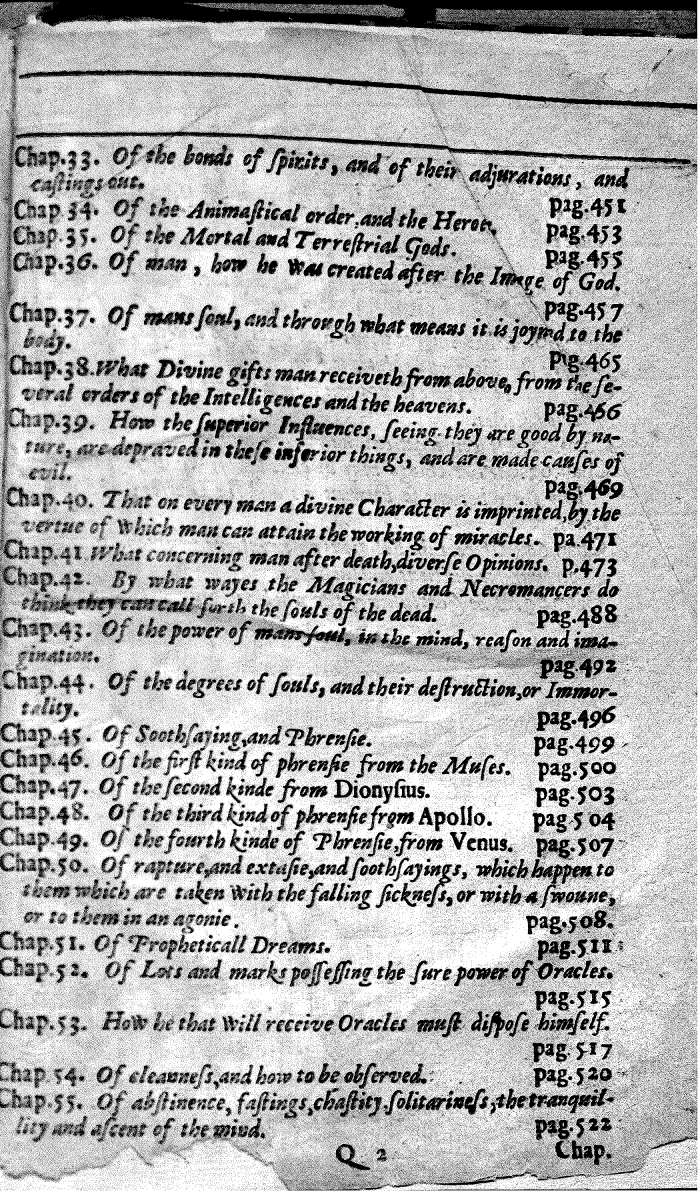 Chap.33. Of the bonds of ſpirits, and of their adjurations, and
caſtings out.
pag.451
Chap 34. Of the Animaſtical order, and the Heroes.
pag.453
Chap.35. Of the Mortal and Terreſtrial Gods.
pag.455
Chap.36. Of man, how he was created after the Image of God.
pag.457
Chap.37. Of mans ſoul, and through what means it is joyned to the
body.
pag.465
Chap.38. What Divine gifts man receiveth from above, from the ſe-
veral orders of the Intelligences and the heavens. pag.466
Chap.39. How the ſuperior Influences, ſeeing they are good by na-
ture, are depraved in theſe inferior things, and are made cauſes of
evil.
pag.469
Chap.40. That on every man a divine Character is imprinted, by the
vertue of which man can attain the working of miracles. pa.471
Chap.41. What concerning man after death, diverſe Opinions. p.473
Chap.42. By what wayes the Magicians and Necromancers do
think they can call forth the ſouls of the dead. pag.488
Chap.43. Of the power of mans ſoul, in the mind, reaſon and ima-
gination. pag.492
Chap.44. Of the degrees of ſouls, and their deſtruction, or Immor-
tality. pag.496
Chap.45. Of Soothſaying, and Phrenſie. pag.499
Chap.46. Of the firſt kind of phrenſie from the Muſes. pag.500
Chap.47. Of the ſecond kinde from Dionyſius. pag.503
Chap.48. Of the third kind of phrenſie from Apollo. pag 504
Chap.49. Of the fourth kinde of Phrenſie, from Venus. pag.507
Chap.50. Of rapture, and extaſie, and ſoothſayings, which happen to
them which are taken with the falling ſickneſs, or with a ſwoune,
or to them in an agonie. pag.508.
Chap.51. Of Propheticall Dreams. pag.511
Chap.52. Of Lots and marks poſſeſſing the ſure power of Oracles.
pag.515
Chap.53. How he that will receive Oracles muſt diſpoſe himſelf.
pag.517
Chap.54. Of cleanneſs, and how to be obſerved. pag.520
Chap.55. Of abſtinence, faſtings, chaſtity, ſolitarineſs, the tranquil-
lity and aſcent of the mind. pag.522
Q 2 Chap.